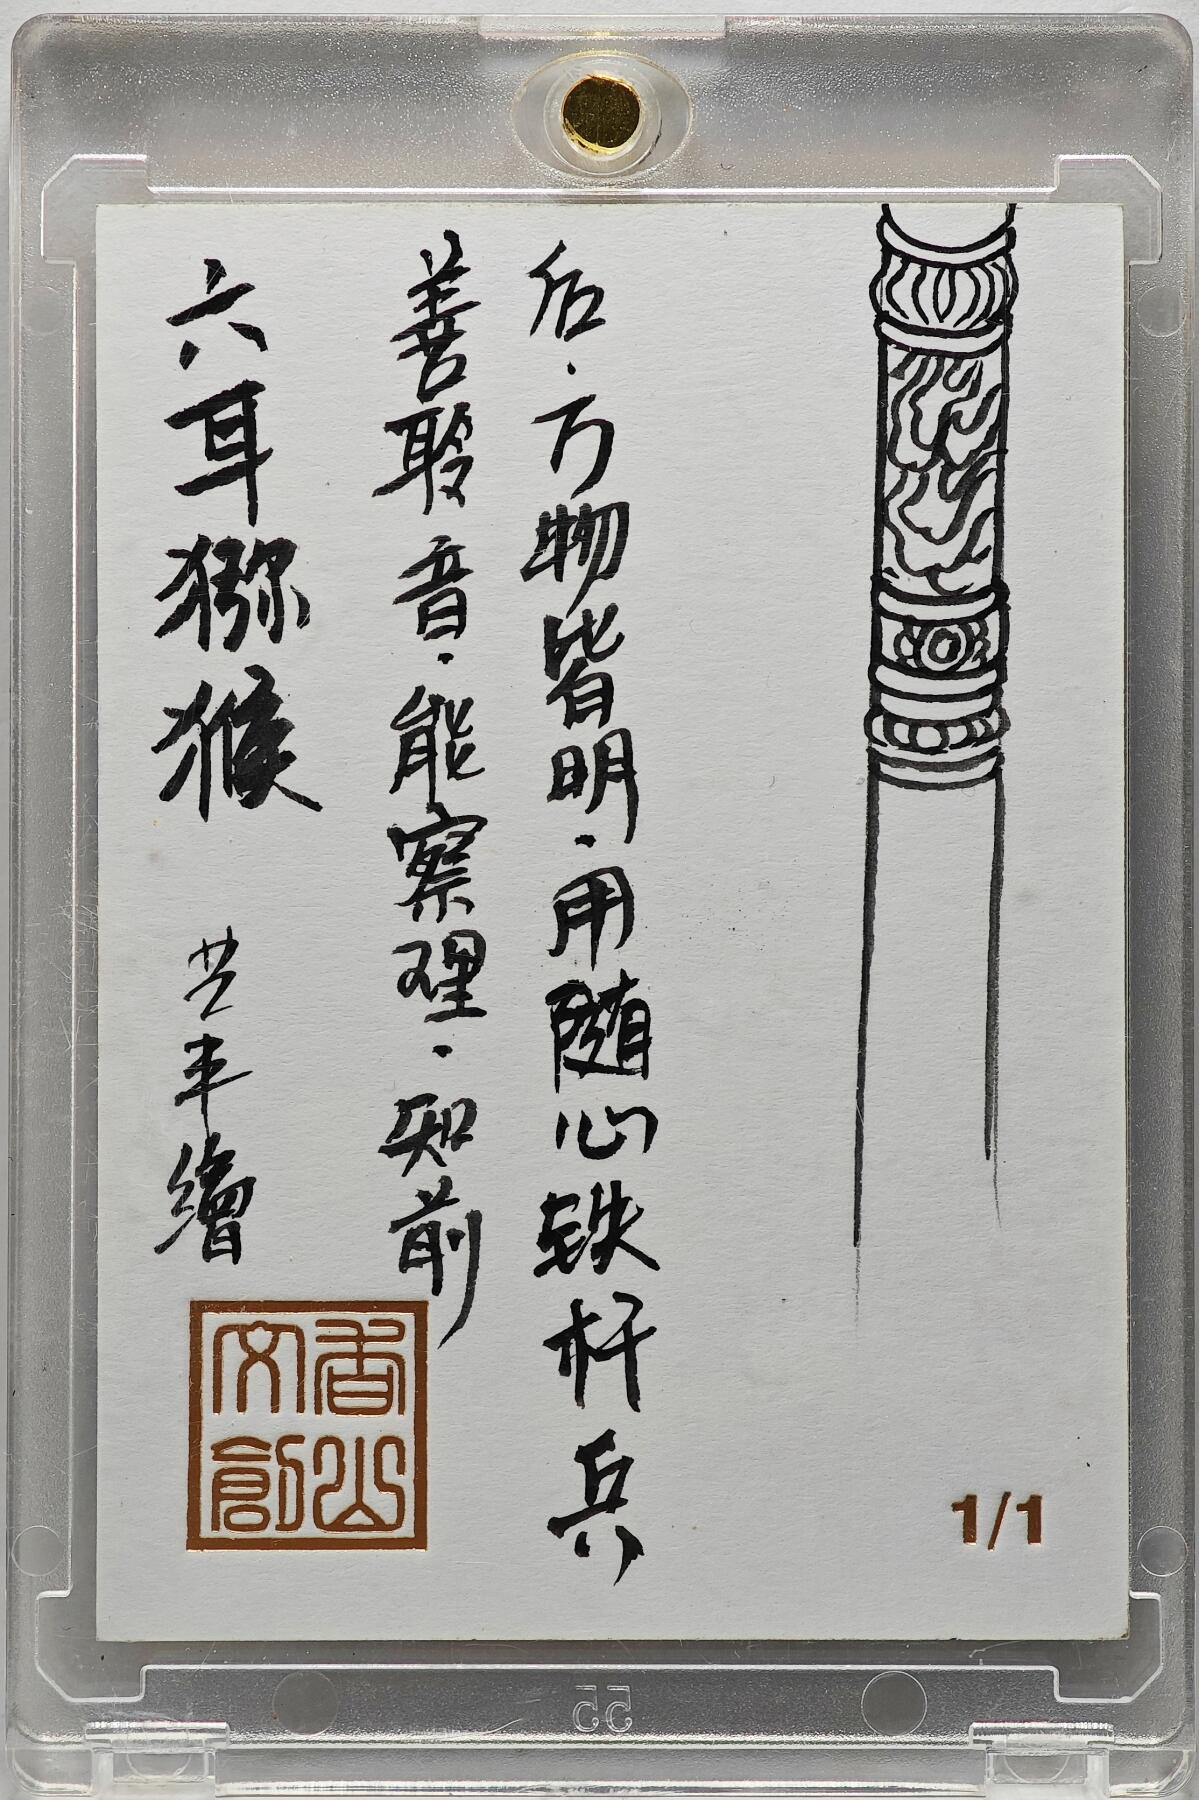 六耳猕猴
丰繪
善聆音·能察理·知前
后·万物皆明·用随心铁杆兵
香山文創
1/1
55